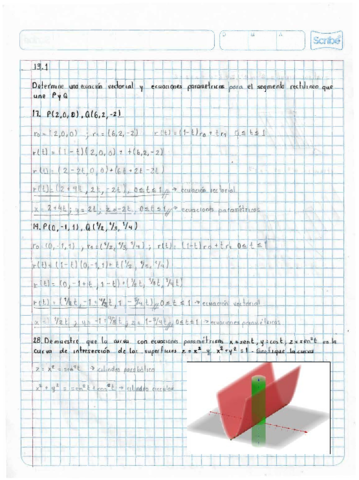 Scribe
13.1
Determine una ecuación vectorial y ecuaciones paramétricas para el segmento rectilíneo que
une P y Q
17. P(2,0,0), Q(6,2,-2)
r₀ = (2,0,0) ; r₁ = (6,2,-2) r(t) = (1-t)r₀ + tr₁ 0≤t≤1
r(t) = (1-t)(2,0,0) + t(6,2,-2)
r(t) = (2-2t,0,0)+(6t+2t-2t)
r(t) = (2+4t, 2t, -2t), 0≤t≤1 → ecuación vectorial
x = 2+4t, y = 2t, z = -2t, 0≤t≤1 → ecuaciones paramétricas
P(0,-1,1), Q(½, ⅓, ¼)
r₀ (0,-1,1), r₁ = (½, ⅓, ¼) ; r(t) = (1-t)r₀ + tr₁ 0≤t≤1
r(t) = (1-t)(0,-1,1) + t(½, ⅓, ¼)
r(t) = (0, -1+t, 1-t) + (½t, ⅓t, ¼t)
0≤t≤1 → ecuación vectorial
0≤t≤1 → ecuaciones paramétricas
28. Demuestre que la curva con ecuaciones paramétricas x = sen t, y = cos t, z = sen²t es la
curva de intersección de las superficies z = x² y x²+y² = 1. Grafique la curva
z = x² = sen²t → cilindro parabólico
x² + y² = → cilindro circular